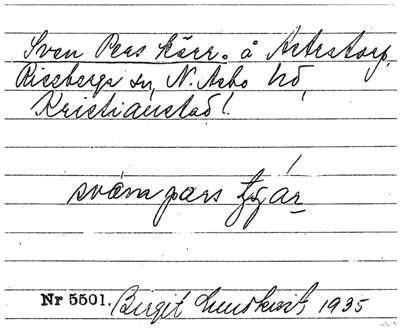 Sven Pers kärr. å Axtatorp,
Riseberga sn, N. Åsbo hd,
Kristianstad l.
svæna pærs
Nr 5501. Birgit Lundkvist, 1935